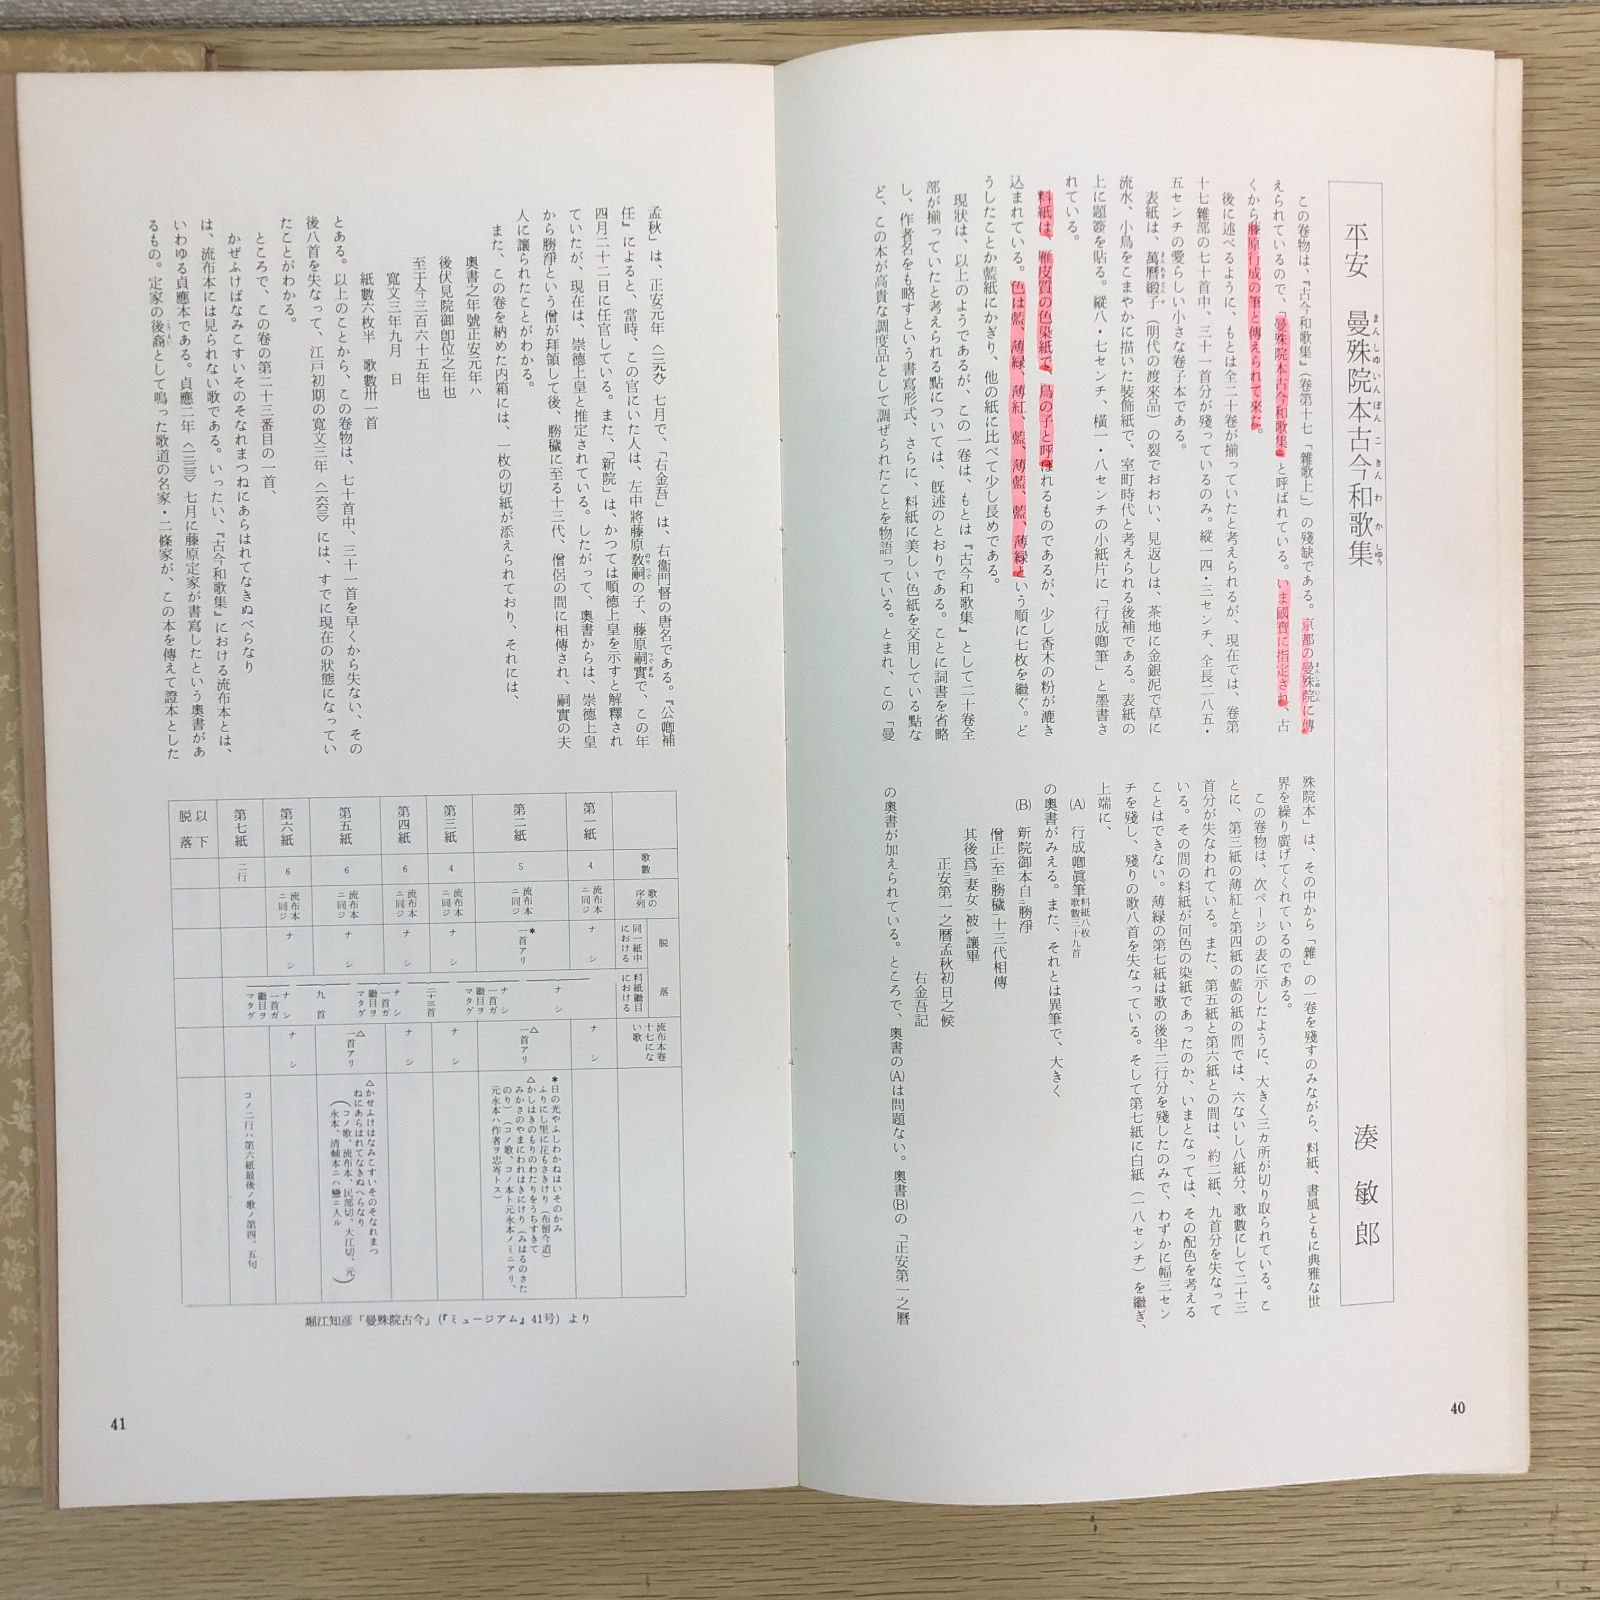 平安 曼殊院本古今和歌集
まんしゆいんぼんこきんわかしゆう
湊 敏郎
この卷物は、『古今和歌集』（卷第十七「雜歌上」）の殘缺である。京都の曼殊院に傳
えられているので、「曼殊院本古今和歌集」と呼ばれている。いま國寶に指定され、古
くから藤原行成の筆と傳えられて來た。
後に述べるように、もとは全二十卷が揃っていたと考えられるが、現在では、卷第
十七雜部の七十首中、三十一首分が殘っているのみ。縱一四・三センチ、全長二八五・
五センチの愛らしい小さな卷子本である。
表紙は、萬曆緞子（明代の渡來品）の裂でおおい、見返しは、茶地に金銀泥で草に
流水、小鳥をこまやかに描いた裝飾紙で、室町時代と考えられる後補である。表紙の
上に題簽を貼る。縱八・七センチ、橫一・八センチの小紙片に「行成卿筆」と墨書さ
れている。
料紙は、雁皮質の色染紙で、鳥の子と呼ばれるものであるが、少し香木の粉が漉き
込まれている。色は藍、薄綠、薄紅、藍、薄藍、藍、薄綠という順に七枚を繼ぐ。ど
うしたことか藍紙にかぎり、他の紙に比べて少し長めである。
現狀は、以上のようであるが、この一卷は、もとは『古今和歌集』として二十卷全
部が揃っていたと考えられる點については、旣述のとおりである。ことに詞書を省略
し、作者名をも略すという書寫形式、さらに、料紙に美しい色紙を交用している點な
ど、この本が高貴な調度品として調ぜられたことを物語っている。とまれ、この「曼
殊院本」は、その中から「雜」の一卷を殘すのみながら、料紙、書風ともに典雅な世
界を繰り廣げてくれているのである。
この卷物は、次ページの表に示したように、大きく三カ所が切り取られている。こ
とに、第三紙の薄紅と第四紙の藍の紙の間では、六ないし八紙分、歌數にして二十三
首分が失なわれている。また、第五紙と第六紙との間は、約二紙、九首分を失なって
いる。その間の料紙が何色の染紙であったのか、いまとなっては、その配色を考える
ことはできない。薄綠の第七紙は歌の後半二行分を殘したのみで、わずかに幅三セン
チを殘し、殘りの歌八首を失なっている。そして第七紙に白紙（一八センチ）を繼ぎ、
上端に、
(A) 行成卿眞筆 料紙八枚 歌數三十九首
の奧書がみえる。また、それとは異筆で、大きく
(B) 新院御本自二勝淨
僧正一至二勝穢一十三代相傳
其後爲二妻女一被レ讓畢
正安第一之曆孟秋初日之候
右金吾記
の奧書が加えられている。ところで、奧書の(A)は問題ない。奧書(B)の「正安第一之曆
40
孟秋」は、正安元年〈一二九九〉七月で、「右金吾」は、右衞門督の唐名である。『公卿補
任』によると、當時、この官にいた人は、左中將藤原敎嗣の子、藤原嗣實で、この年
四月二十二日に任官している。また、「新院」は、かつては順德上皇を示すと解釋され
ていたが、現在は、崇德上皇と推定されている。したがって、奧書からは、崇德上皇
から勝淨という僧が拜領して後、勝穢に至る十三代、僧侶の間に相傳され、嗣實の夫
人に讓られたことがわかる。
また、この卷を納めた內箱には、一枚の切紙が添えられており、それには、
奧書之年號正安元年ハ
後伏見院御卽位之年也
至于今三百六十五年也
寬文三年九月 日
紙數六枚半 歌數卅一首
とある。以上のことから、この卷物は、七十首中、三十一首を早くから失ない、その
後八首を失なって、江戶初期の寬文三年〈一六六三〉には、すでに現在の狀態になってい
たことがわかる。
ところで、この卷の第二十三番目の一首、
かぜふけばなみこすいそのそなれまつねにあらはれてなきぬべらなり
は、流布本には見られない歌である。いったい、『古今和歌集』における流布本とは、
いわゆる貞應本である。貞應二年〈一二二三〉七月に藤原定家が書寫したという奧書があ
るもの。定家の後裔として鳴った歌道の名家・二條家が、この本を傳えて證本とした
歌數
歌の序列
脫落
同一紙中における
料紙繼目における
流布本卷十七にない歌
第一紙 4 流布本ニ同ジ ナシ ナシ
第二紙 5 流布本ニ同ジ *一首アリ △一首アリ
*日の光やふしわかねはいそのかみ
ふりにし里に花もさきけり（布留今道）
△かしはきのもりのわたりをうちすきて
みかさのやまにわれはきにけり（みはるのきた
のり）（コノ歌、コノ本ト元永本ノミニアリ、
元永本ハ作者ヲ忠岑トス）
第三紙 4 流布本ニ同ジ ナシ ナシ
第四紙 6 流布本ニ同ジ ナシ ナシ
第五紙 6 流布本ニ同ジ ナシ △一首アリ
△かせふけはなみこすいそのそなれまつ
ねにあらはれてなきぬへらなり
（コノ歌、流布本、民部切、大江切、元永本、清輔本ニハ戀二入ル）
第六紙 6 流布本ニ同ジ ナシ ナシ
第七紙 二行
コノ二行ハ第六紙最後ノ歌ノ第四、五句
以下脫落
ナシ
ナシ 一首ガ繼目ヲマタグ
二十三首
ナシ 一首ガ繼目ヲマタグ
九首
ナシ 一首ガ繼目ヲマタグ
堀江知彦「曼殊院古今」（『ミュージアム』41号）より
41